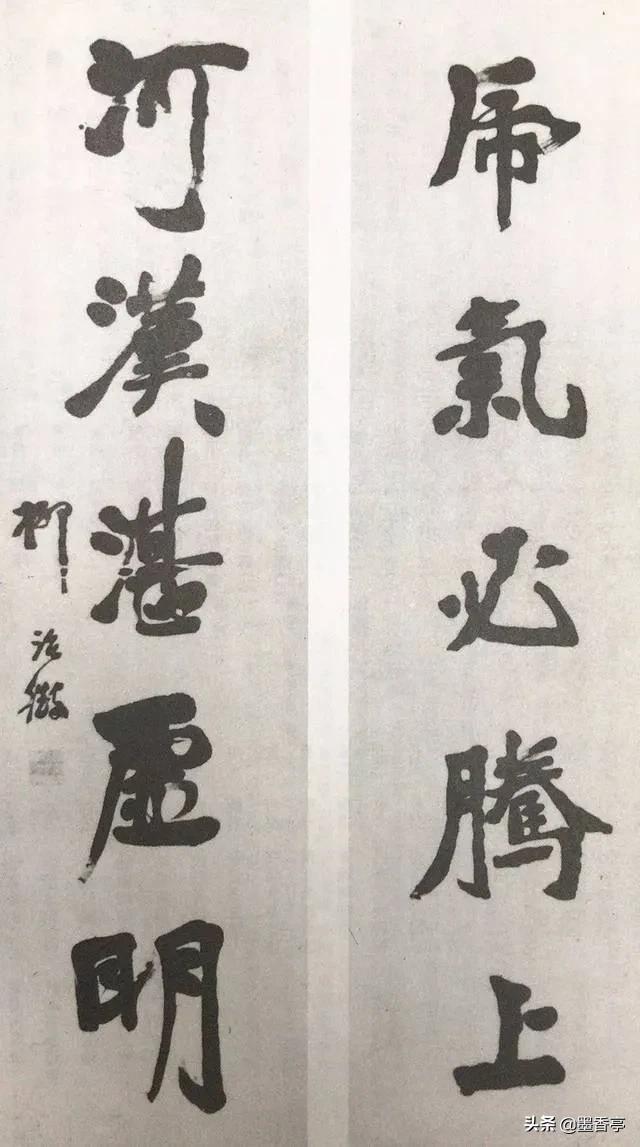 乕氣必騰上
河漢湛虛明
柳詒徵
头条 @墨香亭